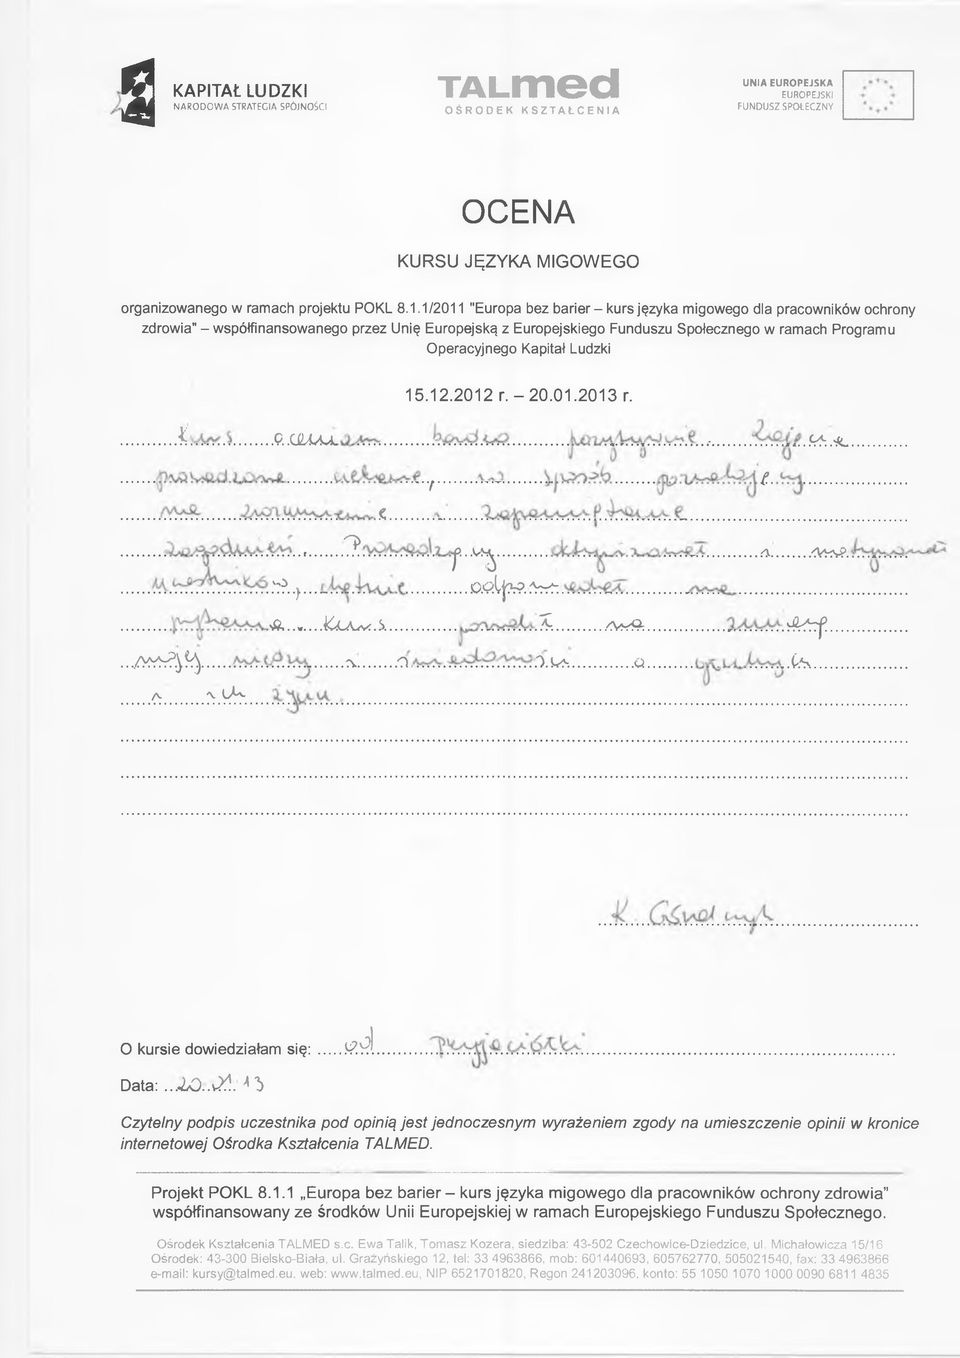 KAPITAŁ LUDZKI
NARODOWA STRATEGIA SPÓJNOŚCI
TALmed
OŚRODEK KSZTAŁCENIA
UNIA EUROPEJSKA
EUROPEJSKI
FUNDUSZ SPOŁECZNY
OCENA
KURSU JĘZYKA MIGOWEGO
organizowanego w ramach projektu POKL 8.1.1/2011 "Europa bez barier – kurs języka migowego dla pracowników ochrony
zdrowia" – współfinansowanego przez Unię Europejską z Europejskiego Funduszu Społecznego w ramach Programu
Operacyjnego Kapitał Ludzki
15.12.2012 r. – 20.01.2013 r.
Kurs oceniam bardzo pozytywnie. Zajęcia
prowadzone ciekawie, w sposób pozwalający
na zrozumienie i zapamiętanie
zagadnień. Prowadzący i motywował
uczestników, chętnie odpowiadał na
pytania. Kurs pozwolił na zmianę
mojej wiedzy i świadomości o głuchych
i ich życiu.
O kursie dowiedziałam się: od Przyjaciółki
Data: 20.01.13
Czytelny podpis uczestnika pod opinią jest jednoczesnym wyrażeniem zgody na umieszczenie opinii w kronice
internetowej Ośrodka Kształcenia TALMED.
Projekt POKL 8.1.1 „Europa bez barier – kurs języka migowego dla pracowników ochrony zdrowia”
współfinansowany ze środków Unii Europejskiej w ramach Europejskiego Funduszu Społecznego.
Ośrodek Kształcenia TALMED s.c. Ewa Talik, Tomasz Kozera, siedziba: 43-502 Czechowice-Dziedzice, ul. Michałowicza 15/16
Ośrodek: 43-300 Bielsko-Biała, ul. Grażyńskiego 12, tel: 33 4963866, mob: 601440693, 605762770, 505021540, fax: 33 4963866
e-mail: kursy@talmed.eu, web: www.talmed.eu, NIP 6521701820, Regon 241203096, konto: 55 1050 1070 1000 0090 6811 4835